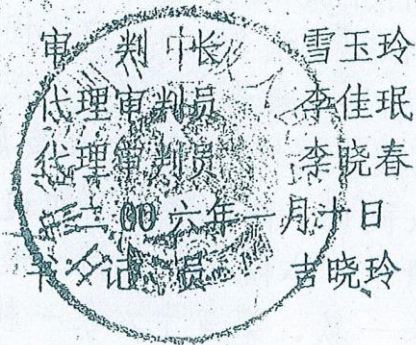 审判长 雪玉玲
代理审判员 李佳珉
代理审判员 李晓春
二00六年一月十日
书记员 吉晓玲